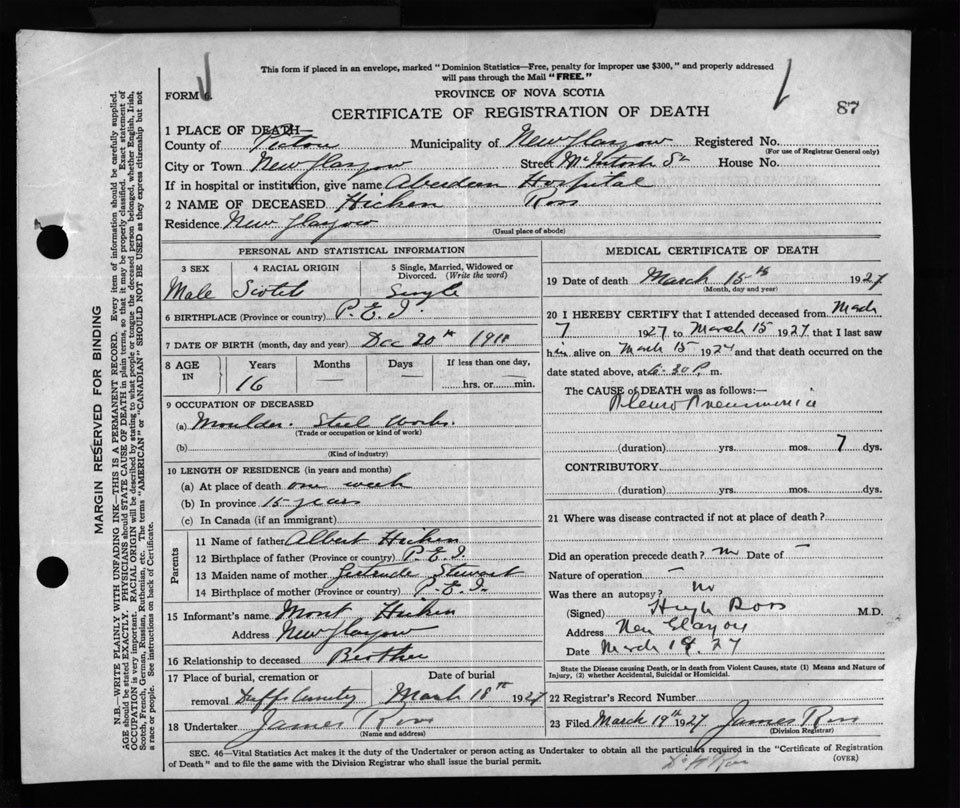 This form if placed in an envelope, marked "Dominion Statistics—Free, penalty for improper use $300," and properly addressed
will pass through the Mail "FREE."
FORM 6
PROVINCE OF NOVA SCOTIA
87
CERTIFICATE OF REGISTRATION OF DEATH
1 PLACE OF DEATH—
County of Pictou Municipality of New Glasgow Registered No.
(For use of Registrar General only)
City or Town New Glasgow Street McIntosh St House No.
If in hospital or institution, give name Aberdeen Hospital
2 NAME OF DECEASED Hicken Ross
Residence New Glasgow
(Usual place of abode)
PERSONAL AND STATISTICAL INFORMATION
3 SEX 4 RACIAL ORIGIN 5 Single, Married, Widowed or
Divorced. (Write the word)
Male Scotch Single
6 BIRTHPLACE (Province or country) P.E.I.
7 DATE OF BIRTH (month, day and year) Dec 20th 1910
8 AGE IN Years Months Days If less than one day,
16 — — hrs. or min.
9 OCCUPATION OF DECEASED
(a) Moulder. Steel Works.
(Trade or occupation or kind of work)
(b)
(Kind of industry)
10 LENGTH OF RESIDENCE (in years and months)
(a) At place of death one week
(b) In province 15 years
(c) In Canada (if an immigrant)
Parents
11 Name of father Albert Hicken
12 Birthplace of father (Province or country) P.E.I.
13 Maiden name of mother Gertrude Stewart
14 Birthplace of mother (Province or country) P.E.I.
15 Informant's name Mont Hicken
Address New Glasgow
16 Relationship to deceased Brother
17 Place of burial, cremation or Date of burial
removal Duffs Cemetery March 18th 1927
18 Undertaker James Ross
(Name and address)
MEDICAL CERTIFICATE OF DEATH
19 Date of death March 15th 1927
(Month, day and year)
20 I HEREBY CERTIFY that I attended deceased from March
7 1927 to March 15 1927 that I last saw
him alive on March 15 1927 and that death occurred on the
date stated above, at 6:30 P. m.
The CAUSE OF DEATH was as follows:—
Pleuro Pneumonia
(duration) yrs. mos. 7 dys.
CONTRIBUTORY
(duration) yrs. mos. dys.
21 Where was disease contracted if not at place of death?
Did an operation precede death? no Date of —
Nature of operation —
Was there an autopsy? no
(Signed) Hugh Ross M.D.
Address New Glasgow
Date March 19. 27
State the Disease causing Death, or in death from Violent Causes, state (1) Means and Nature of
Injury, (2) whether Accidental, Suicidal or Homicidal.
22 Registrar's Record Number
23 Filed March 19th 1927 James Ross
(Division Registrar)
SEC. 46—Vital Statistics Act makes it the duty of the Undertaker or person acting as Undertaker to obtain all the particulars required in the "Certificate of Registration
of Death" and to file the same with the Division Registrar who shall issue the burial permit.
(OVER)
Dr H Ross
MARGIN RESERVED FOR BINDING
N.B.—WRITE PLAINLY WITH UNFADING INK—THIS IS A PERMANENT RECORD. Every item of information should be carefully supplied.
AGE should be stated EXACTLY. PHYSICIANS should STATE CAUSE OF DEATH in plain terms, so that it may be properly classified. Exact statement of
OCCUPATION is very important. RACIAL ORIGIN will be described by stating to what people or tongue the deceased person belonged, whether English, Irish,
Scotch, French, German, Russian, Ruthenian, etc. The terms "AMERICAN" or "CANADIAN" SHOULD NOT BE USED as they express citizenship but not
a race or people. See instructions on back of Certificate.